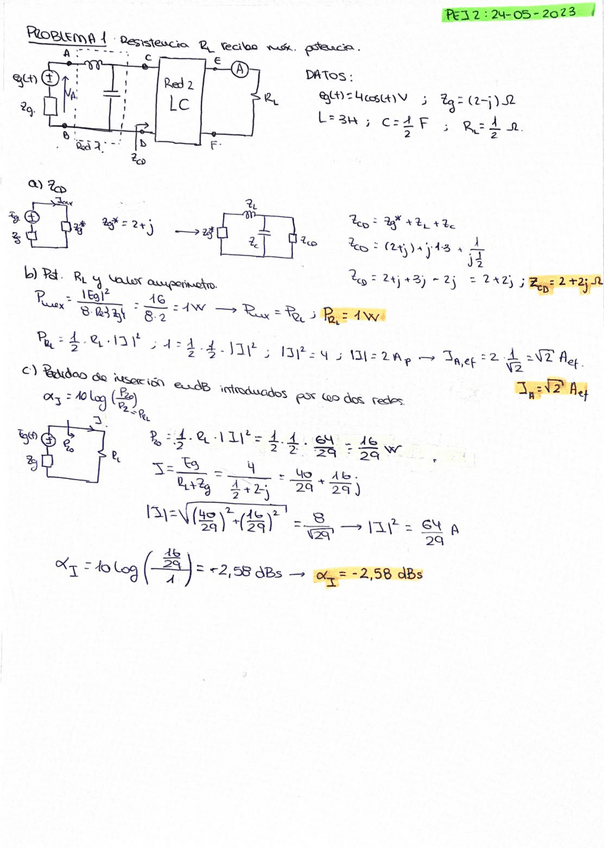 PEI 2 : 24-05-2023
PROBLEMA 1. Resistencia RL recibe máx. potencia.
A C E A
eg(t) VA Red 2 LC RL
Zg
B Red 1 D F
ZCD
DATOS:
eg(t) = 4cos(t) V ; Zg = (2-j) Ω
L = 3H ; C = 1/2 F ; RL = 1/2 Ω.
a) ZCD
Eg Zg Zg*
Zg* = 2+j → Zg* ZL ZC ZCD
ZCD = Zg* + ZL + ZC
ZCD = (2+j) + j·1·3 + 1/(j 1/2)
ZCD = 2+j + 3j - 2j = 2+2j ; ZCD = 2+2j Ω
b) Pot. RL y valor amperímetro.
Pmax = |Eg|²/(8·Re{Zg}) = 16/(8·2) = 1W → Pmax = PRL ; PRL = 1W
PRL = 1/2 · RL · |I|² ; 1 = 1/2 · 1/2 · |I|² ; |I|² = 4 ; |I| = 2 Ap → IA,ef = 2 · 1/√2 = √2 Aef.
IA = √2 Aef
c) Pérdidas de inserción en dB introducidas por las dos redes.
αI = 10 log (P20/P2 = PRL)
Eg(t) Zg P20 I RL
P20 = 1/2 · RL · |I|² = 1/2 · 1/2 · 64/29 = 16/29 W
I = Eg/(RL+Zg) = 4/(1/2 + 2-j) = 40/29 + 16/29 j
|I| = √((40/29)² + (16/29)²) = 8/√29 → |I|² = 64/29 A
αI = 10 log ((16/29)/1) = -2,58 dBs → αI = -2,58 dBs